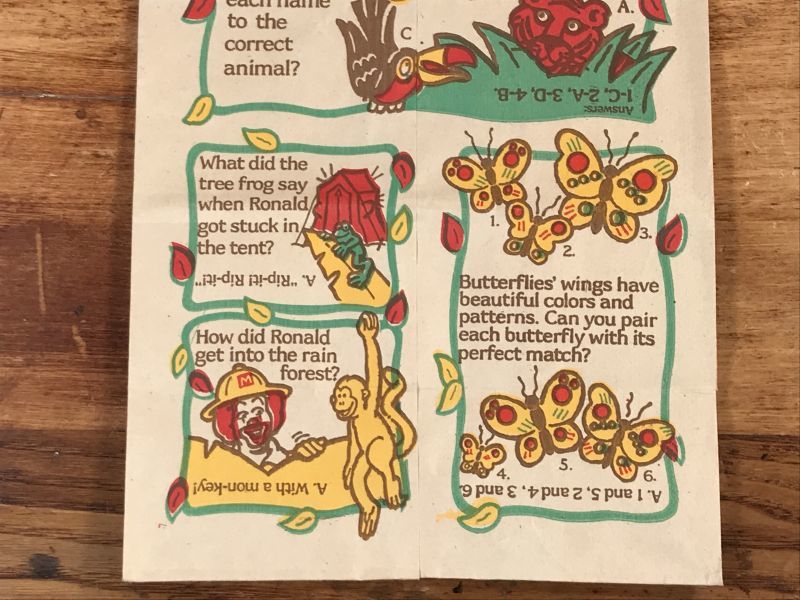 each name
to the
correct
animal?
C
A.
Answers:
1-C, 2-A, 3-D, 4-B.
What did the
tree frog say
when Ronald
got stuck in
the tent?
A. "Rip-it! Rip-it!"
How did Ronald
get into the rain
forest?
M
A. With a mon-key!
1.
2.
3.
Butterflies' wings have
beautiful colors and
patterns. Can you pair
each butterfly with its
perfect match?
4.
5.
6.
A. 1 and 5, 2 and 4, 3 and 6.